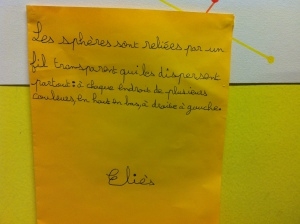 Les sphères sont reliées par un
fil transparent qui les dispersent
partout : à chaque endroit de plusieurs
couleurs, en haut en bas, à droite à gauche.
Eliès